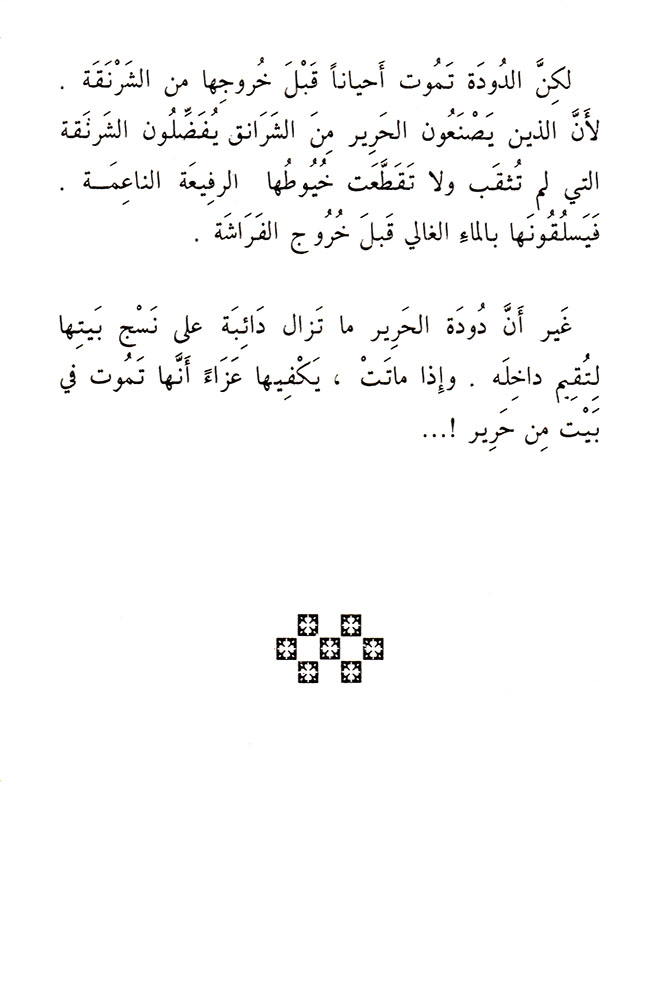 لكِنَّ الدُودَة تَمُوت أَحياناً قَبْلَ خُروجِها من الشَرْنَقَة .
لأَنَّ الذين يَصْنَعُون الحَرِير مِنَ الشَرَانق يُفَضِّلُون الشَرنَقة
التي لم تُثقَب ولا تَقَطَّعَت خُيُوطُها الرفِيعَة الناعِمَـة .
فَيَسلُقُونَها بالماءِ الغالي قَبلَ خُرُوج الفَرَاشَة .
غَير أَنَّ دُودَة الحَرِير ما تَزال دَائِبَة على نَسْج بَيتِها
لِتُقِيم داخِلَه . وإِذا ماتَتْ ، يَكْفِيها عَزَاءً أَنَّها تَمُوت في
بَيْت مِن حَرِير !...